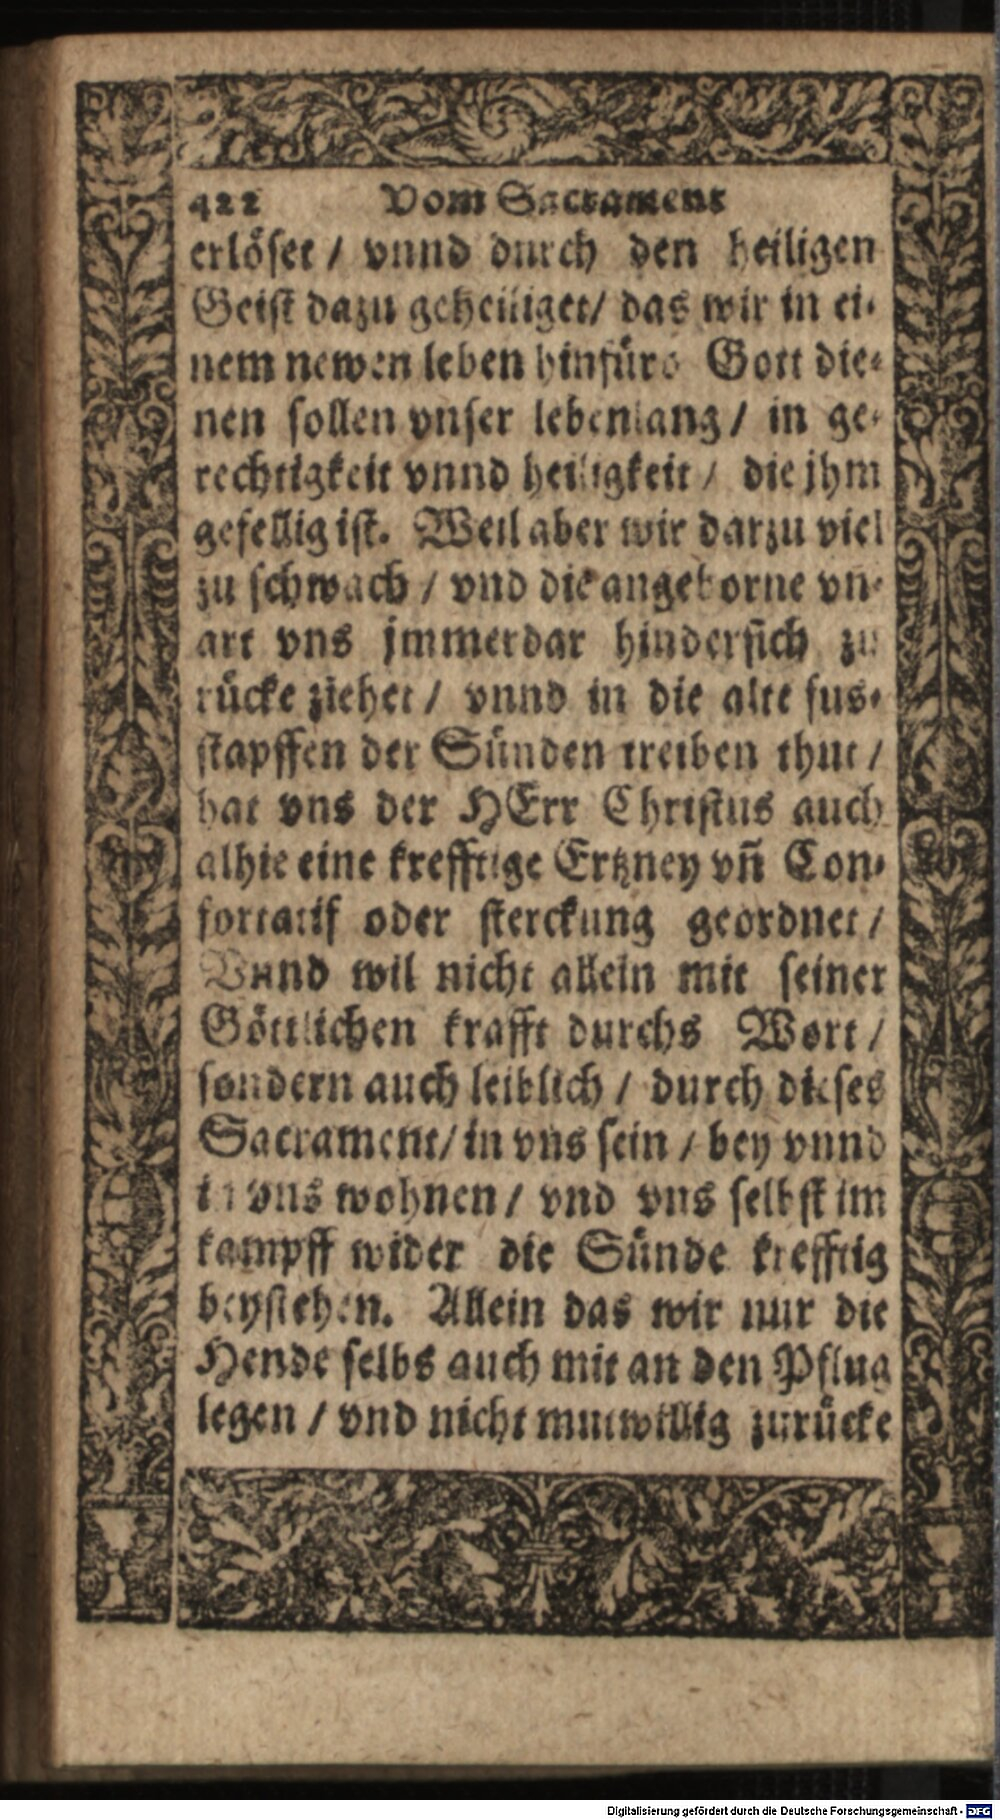 422 Vom Sacrament
erlöset / vnnd durch den heiligen
Geist dazu geheiliget / das wir in ei-
nem newen leben hinfüro Gott die-
nen sollen vnser lebenlang / in ge-
rechtigkeit vnnd heiligkeit / die jhm
gefellig ist. Weil aber wir darzu viel
zu schwach / vnd die angeborne vn-
art vns jmmerdar hindersich zu
rücke ziehet / vnnd in die alte fus-
stapffen der Sünden treiben thut /
hat vns der HErr Christus auch
alhie eine krefftige Ertzney vñ Con-
fortatif oder sterckung geordnet /
Vnnd wil nicht allein mit seiner
Göttlichen krafft durchs Wort /
sondern auch leiblich / durch dieses
Sacrament / in vns sein / bey vnnd
in vns wohnen / vnd vns selbst im
kampff wider die Sünde krefftig
beystehen. Allein das wir nur die
Hende selbs auch mit an den Pflug
legen / vnd nicht mutwillig zurücke
Digitalisierung gefördert durch die Deutsche Forschungsgemeinschaft - DFG